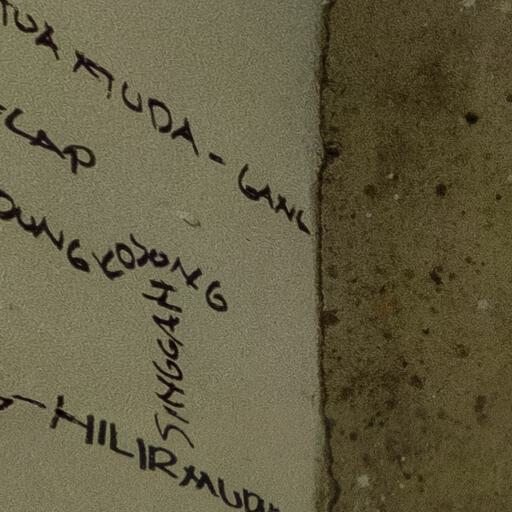 TUA MUDA - GANG
ELAP
DUNG KOSONG
SINGGAH
- HILIR MUDIK